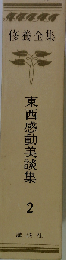 修養全集
東西感動美談集
2
講談社